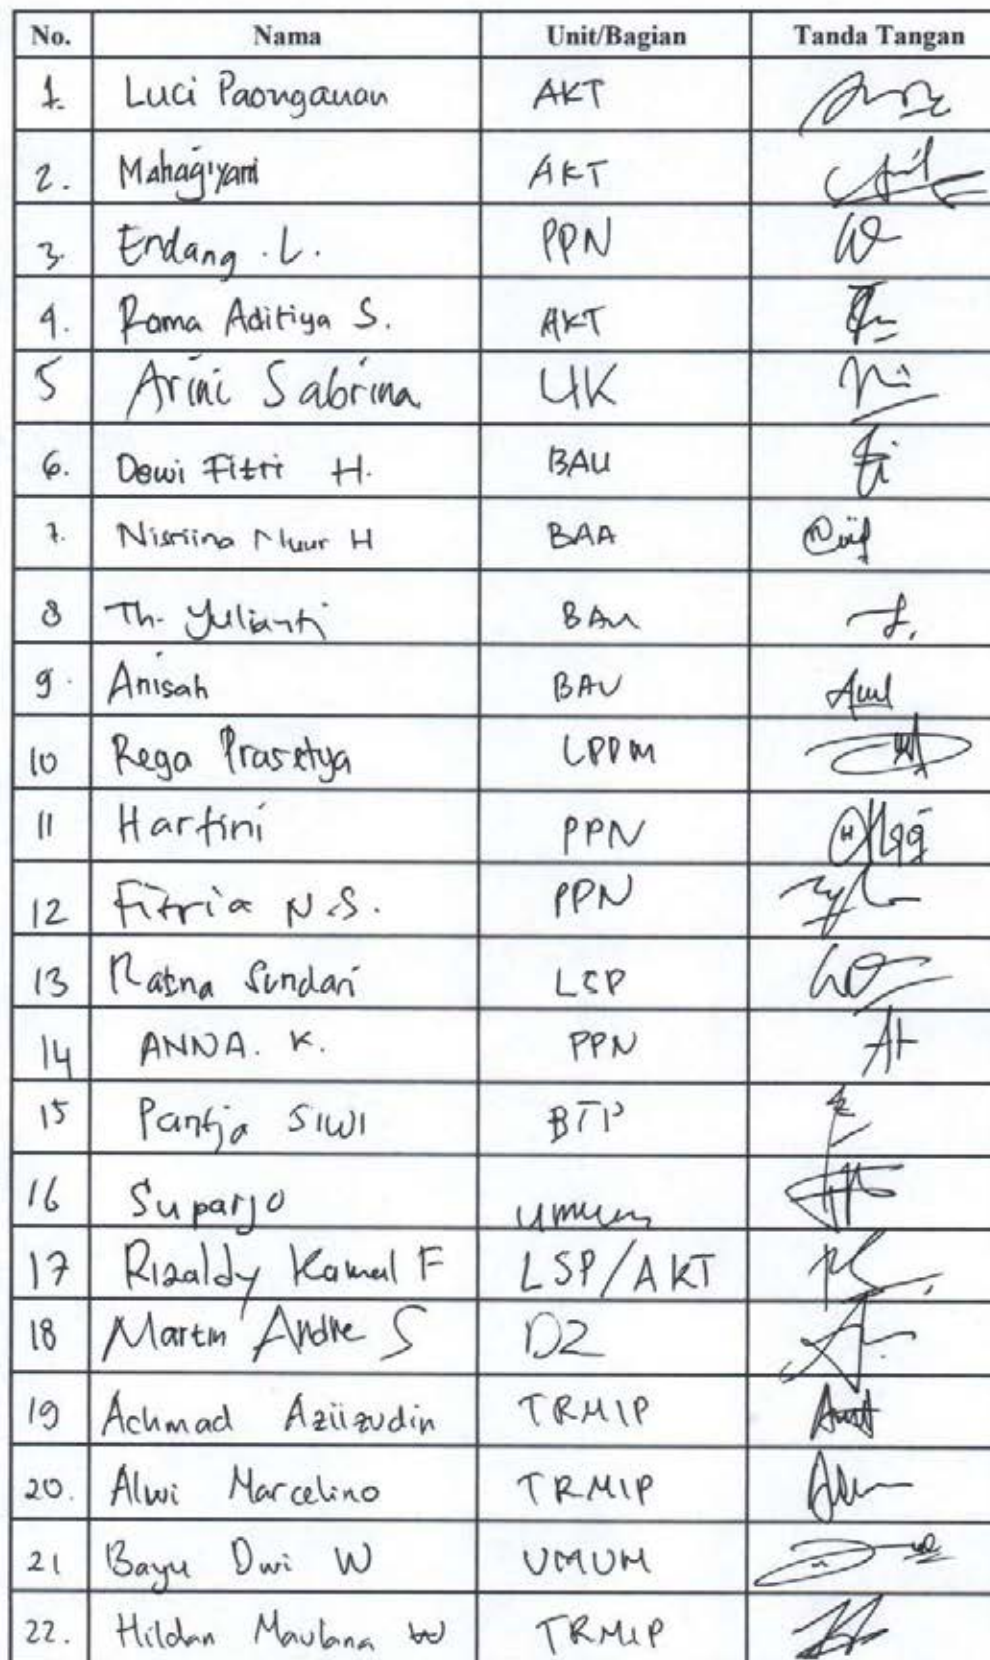 No. Nama Unit/Bagian Tanda Tangan
1. Luci Paonganan AKT
2. Mahagiyani AKT
3. Endang . L. PPN
4. Rama Aditiya S. AKT
5 Arini Sabrina UK
6. Dewi Fitri H. BAU
7. Nisriina Nuur H BAA
8 Th. Yulianti BAU
9. Anisah BAU
10 Rega Prasetya LPPM
11 Hartini PPN
12 Fitria N.S. PPN
13 Ratna Sundari LSP
14 ANNA. K. PPN
15 Pantja SIWI BTP
16 Suparjo umum
17 Rizaldy Kamal F LSP/AKT
18 Martin Andre S D2
19 Achmad Aziizudin TRMIP
20. Alwi Marcelino TRMIP
21 Bayu Dwi W UMUM
22. Hildan Maulana W TRMIP